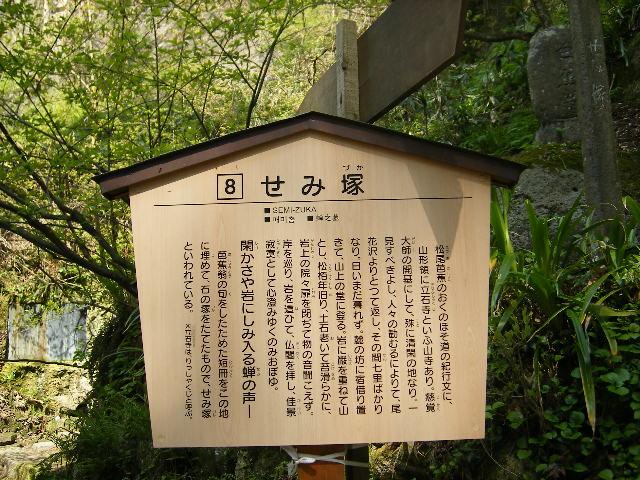 8 せみ塚
づか
■ SEMI-ZUKA
■ 매미총 ■ 蝉之墓
松尾芭蕉のおくのほそ道の紀行文に、
山形領に立石寺といふ山寺あり。慈覚
大師の開基にして、殊に清閑の地なり。一
見すべきよし、人々の勧むるによりて、尾
花沢よりとって返し、その間七里ばかり
なり。日いまだ暮れず。麓の坊に宿借り置
きて、山上の堂に登る。岩に巌を重ねて山
とし、松栢年旧り、土石老いて苔滑らかに、
岩上の院々扉を閉ぢて物の音聞こえず。
岸を巡り、岩を這ひて、仏閣を拝し、佳景
寂寞として心澄みゆくのみおぼゆ。
閑かさや岩にしみ入る蝉の声
芭蕉翁の句をしたためた短冊をこの地
に埋めて、石の塚をたてたもので、せみ塚
といわれている。 ※立石寺はりっしゃくじと呼ぶ。